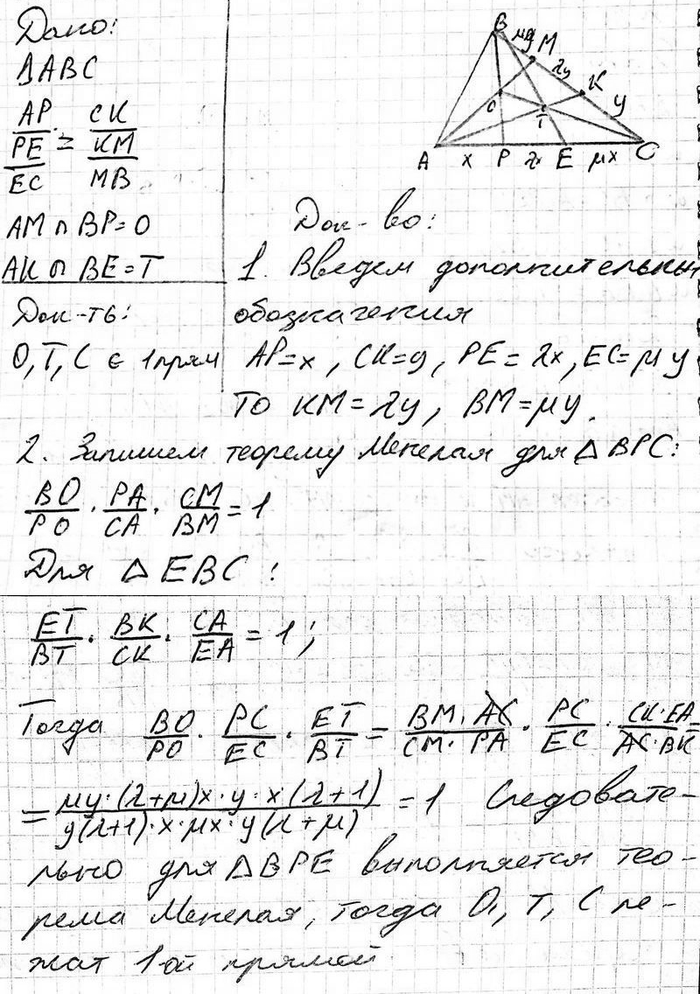 Дано:
ΔABC
AP/PE/EC = CK/KM/MB
AM ∩ BP = O
AK ∩ BE = T
Док-ть:
O, T, C ∈ 1 прям
B μy M λy K y O T A x P λx E μx C
Док-во:
1. Введем дополнительны
обозначения
AP = x, CK = y, PE = λx, EC = μy
то KM = λy, BM = μy.
2. Запишем теорему Менелая для Δ BPC:
BO/PO · PA/CA · CM/BM = 1
Для Δ EBC:
ET/BT · BK/CK · CA/EA = 1;
Тогда BO/PO · PC/EC · ET/BT = BM · AC/CM · PA · PC/EC · CK · EA/AC · BK =
= μy · (λ+μ)x · y · x(λ+1)/y(λ+1) · x · μx · y(λ+μ) = 1 Следовате-
льно для Δ BPE выполняется тео-
рема Менелая, тогда O, T, C ле-
жат 1-ой прямой